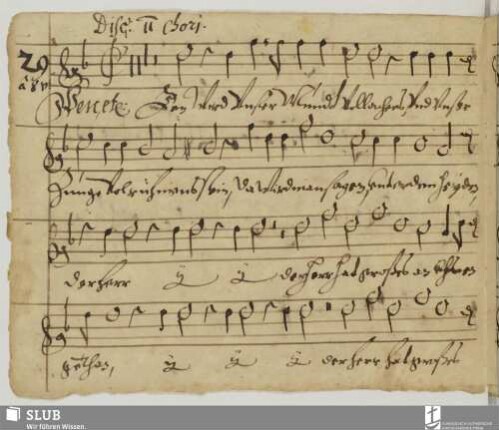 Disc. II Chori.
29
à 8 v.
Den wird unser Mund voll lachens und unser
Zunge vol rühmens sein, da wird man sagen unter den heyden,
der herr ij ij der herr hat großes an ihnen
gethan, ij ij ij der herr hat großes
SLUB
Wir führen Wissen.